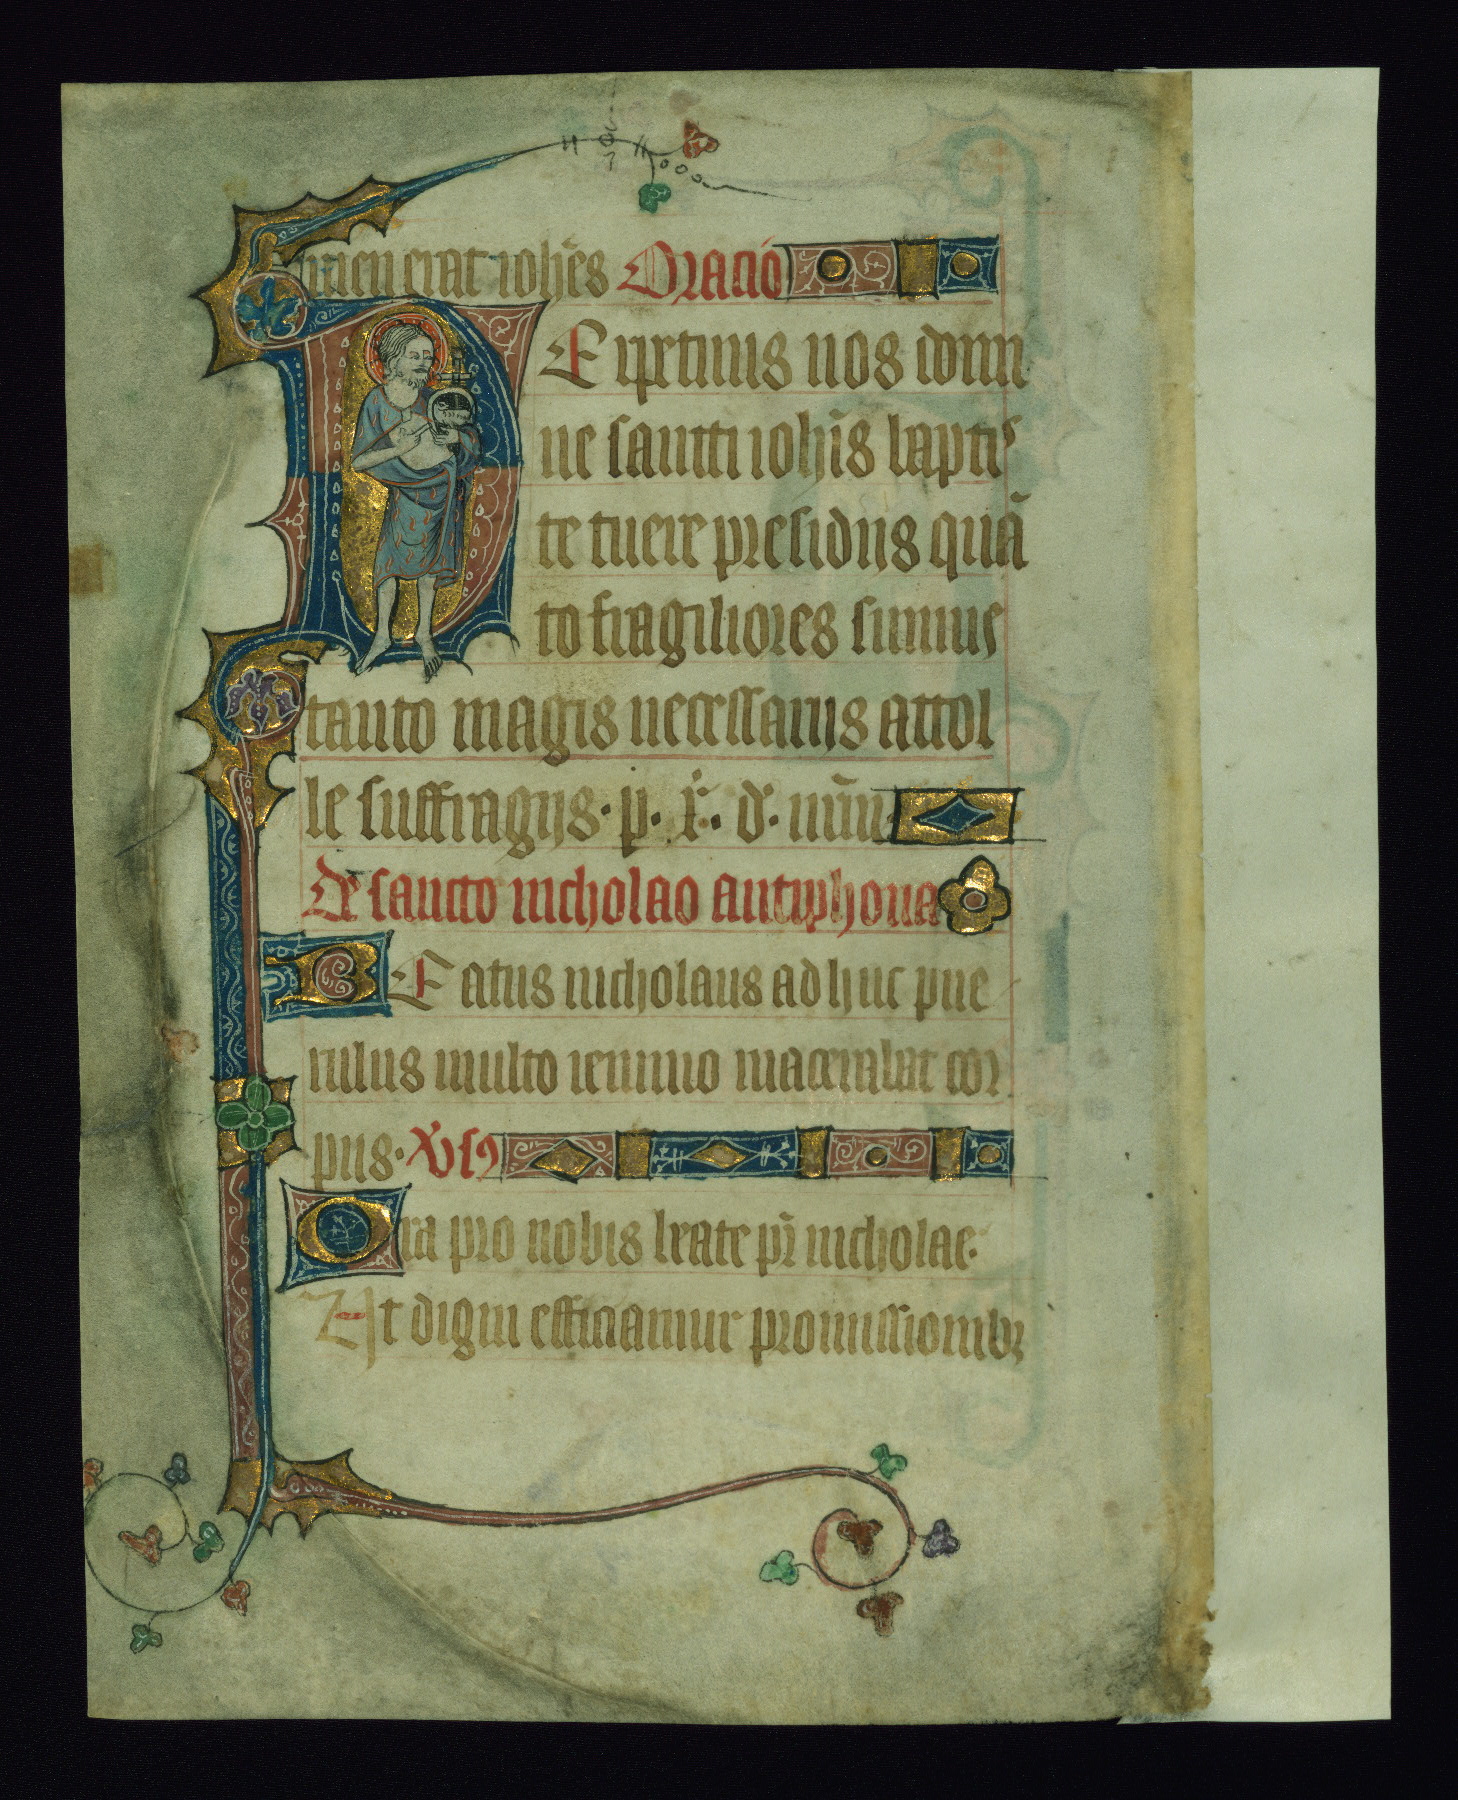 men erat ioh̄es Oracio
PErpetuis nos domi
ne sancti ioh̄is baptis
te tuere presidiis quā
to fragiliores sumus
tanto magis necessariis attol
le suffragijs · p̱ · x̄ · d̄ · nr̄m
De sancto nicholao antiphona
BEatus nicholaus adhuc pue
rulus multo ieiunio macerabat cor
pus · Vꝰ
Ora pro nobis beate pr̄ nicholae ·
Vt digni efficiamur promissionibꝫ